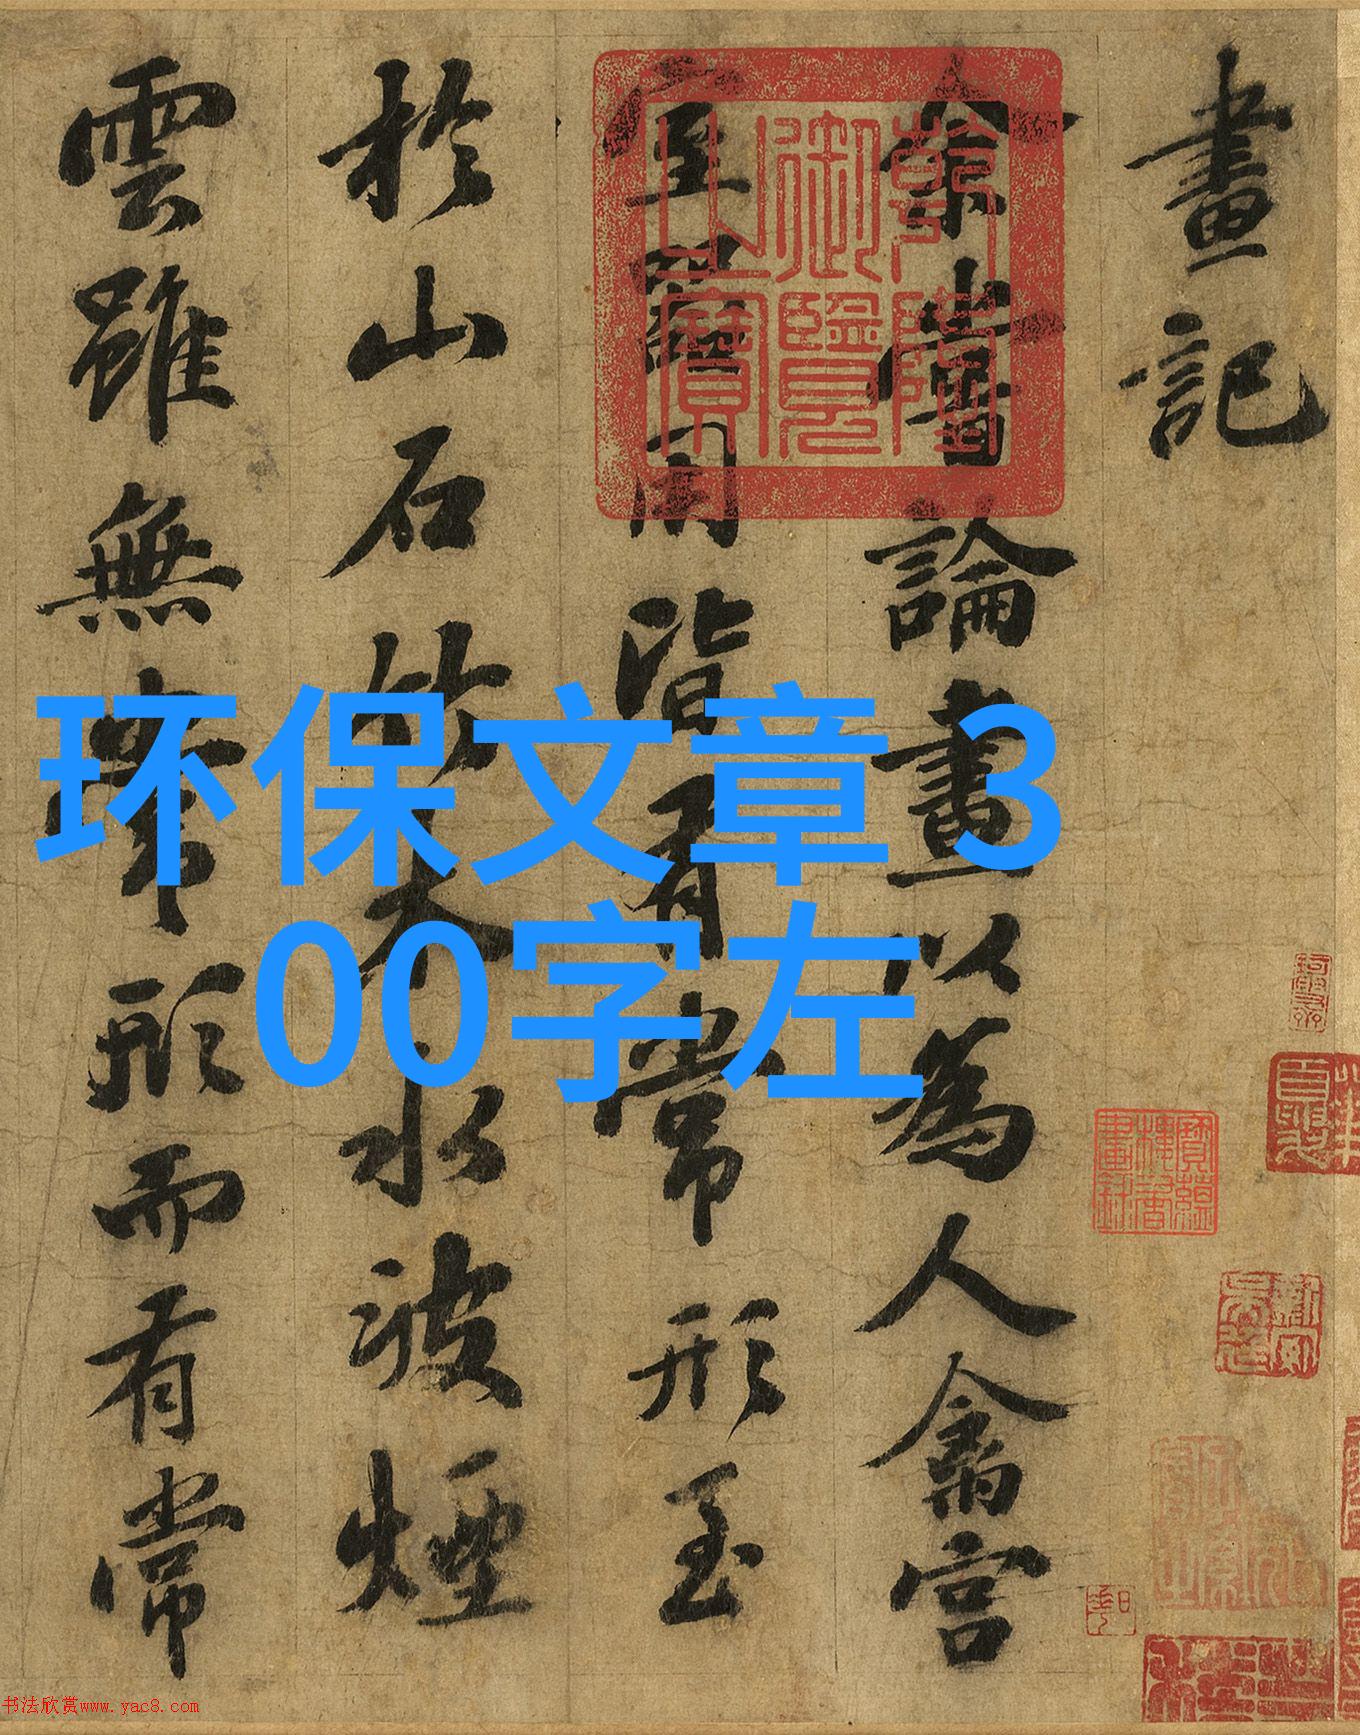 畫記
余嘗論畫以為人禽宮
室器用皆有常形至
於山石竹木水波煙
雲雖無常形而有常
乾隆
御覽
之寶
环保文章 3
00字左
书法欣赏www.yac8.com